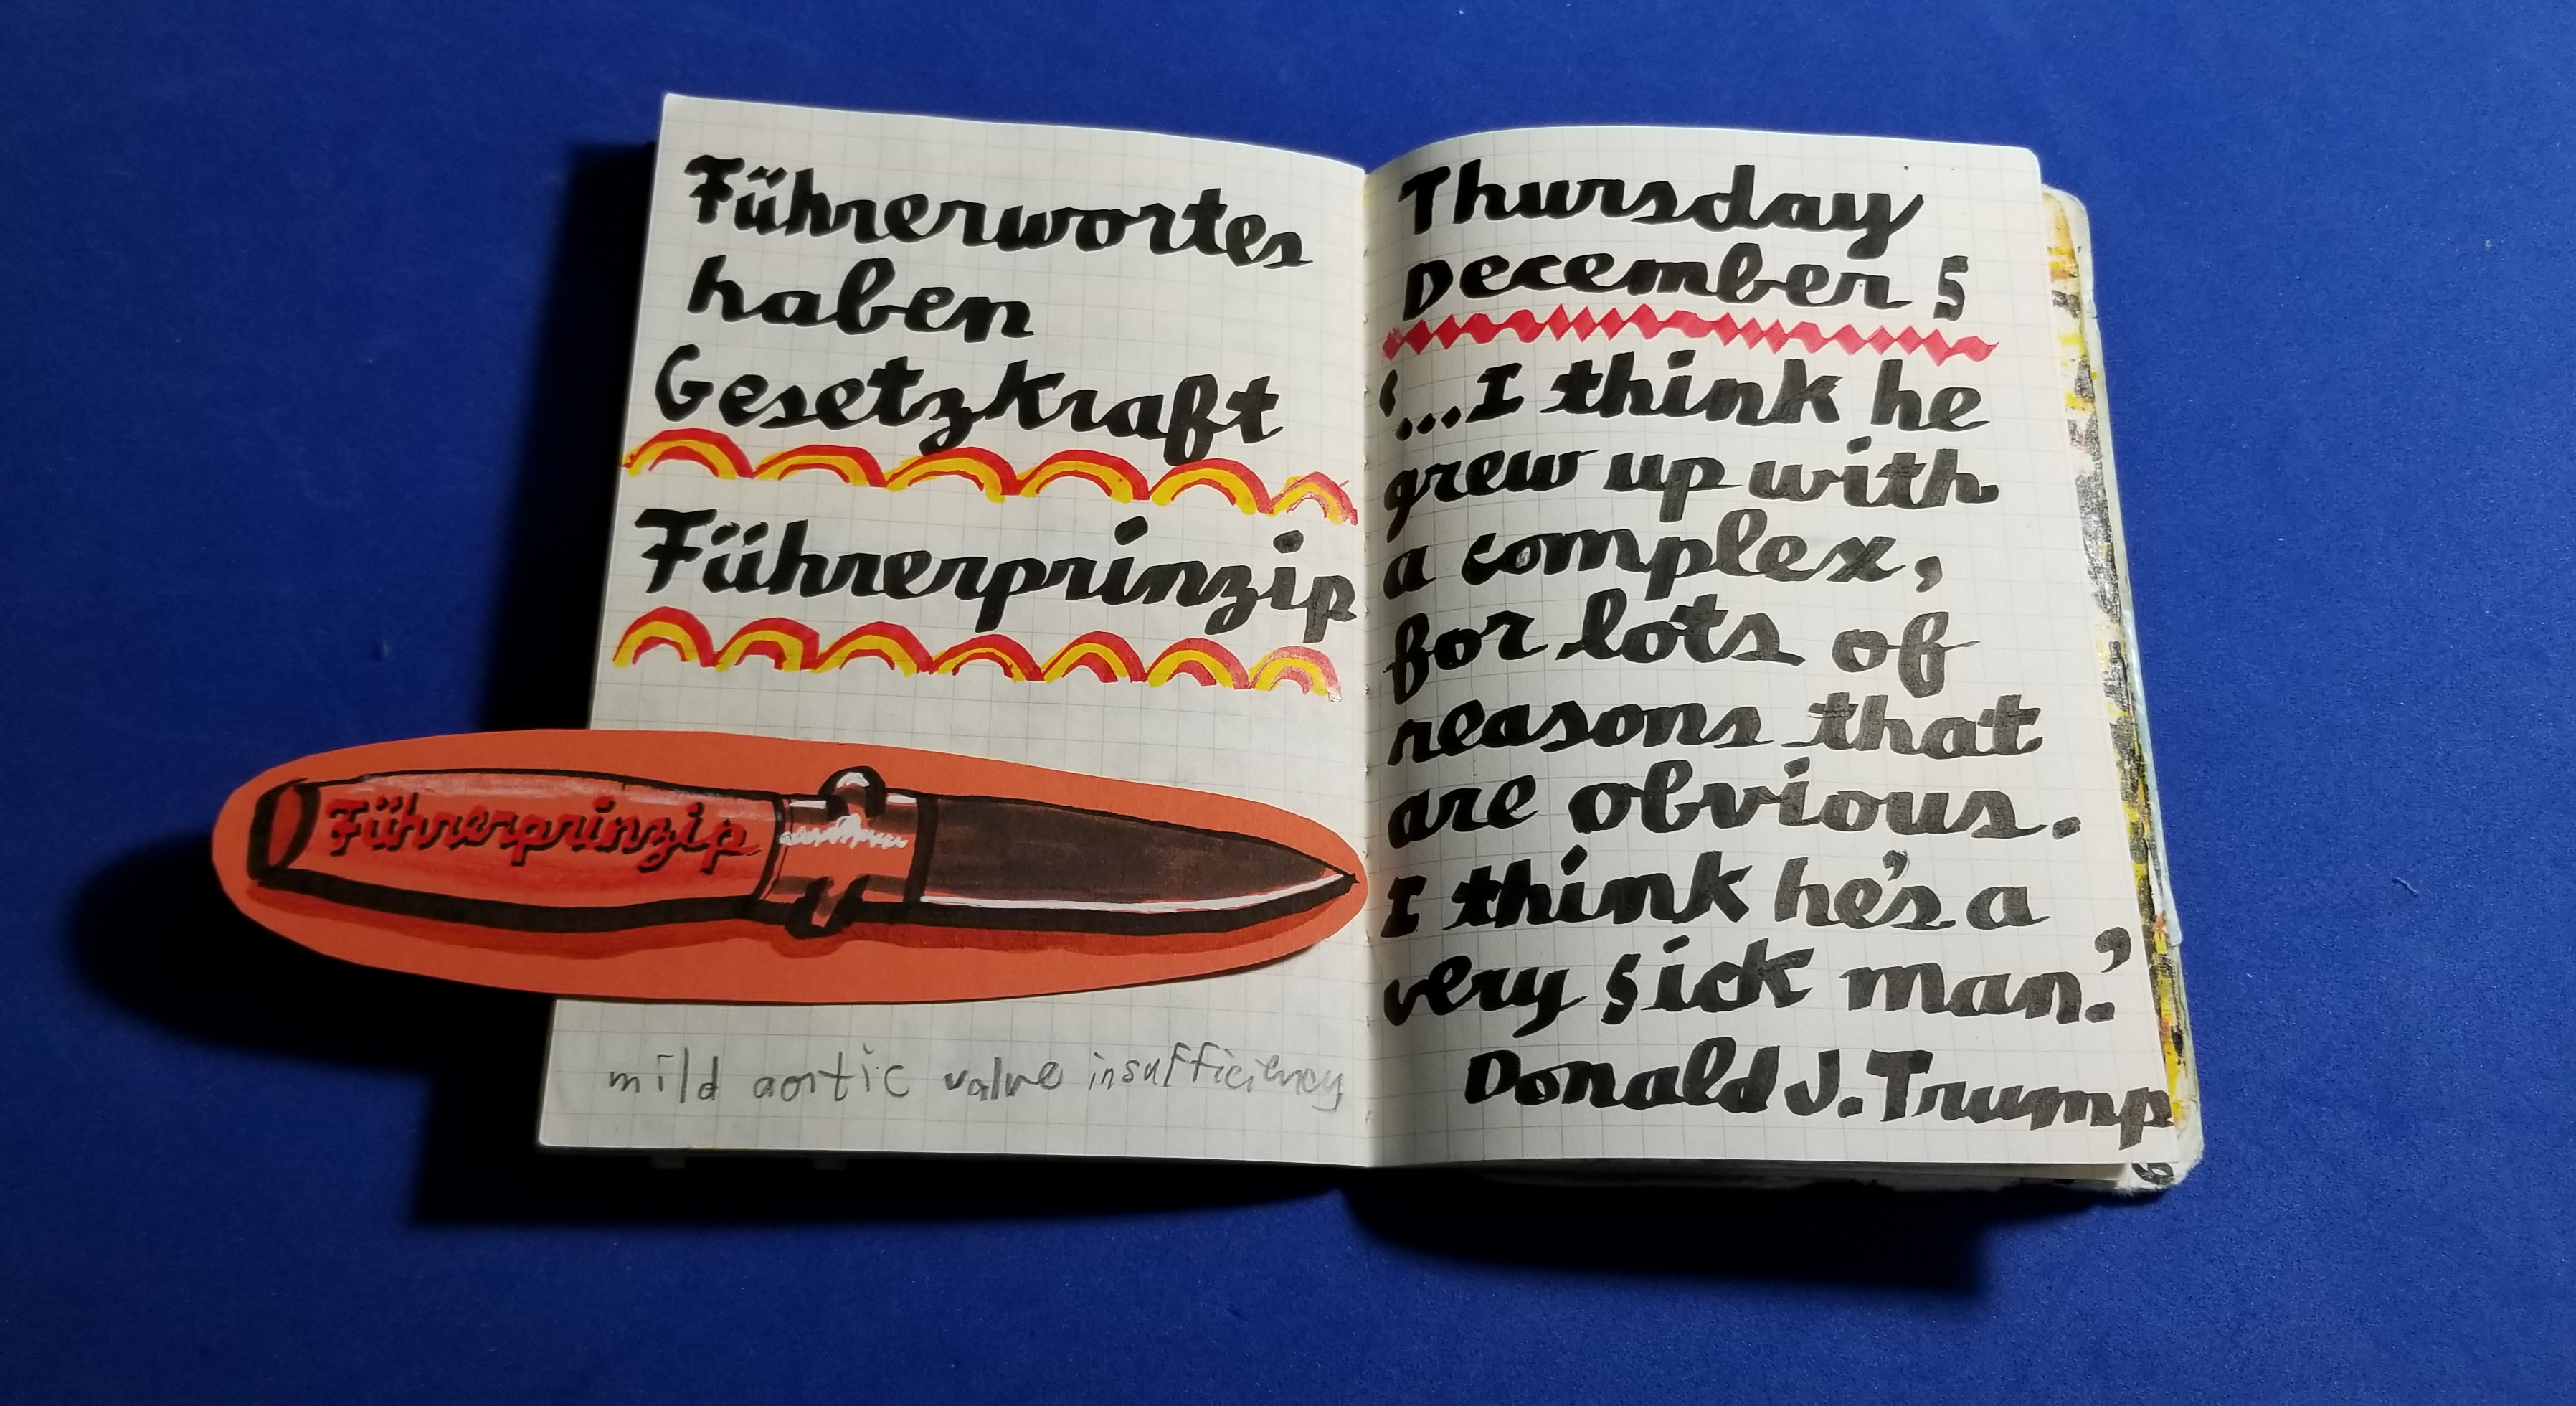 Führerwortes
haben
Gesetzkraft
Führerprinzip
Führerprinzip
mild aortic valve insufficiency
Thursday
December 5
‘...I think he
grew up with
a complex,
for lots of
reasons that
are obvious.
I think he's a
very sick man.’
Donald J. Trump